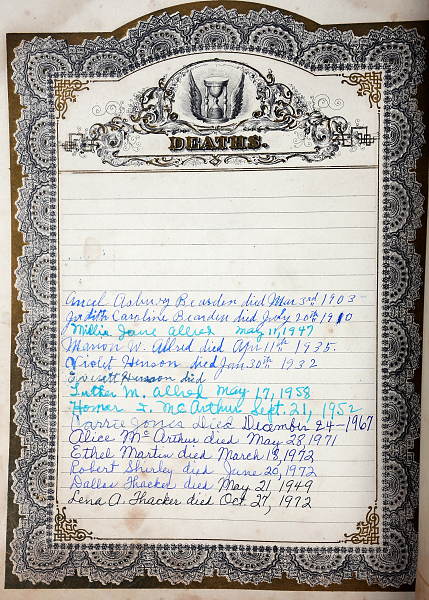 DEATHS.
Ancel Asbury Bearden died Mar 3rd 1903
Judith Caroline Bearden died July 20th 1910
Millie Jane Allred May 11, 1947
Marion W. Allred died Apr 11th 1935.
Violet Henson died Jan 30th 1932
Everett Henson died
Luther M. Allred May 17, 1958
Homer F. McArthur Sept. 21, 1952
Carrie Jones Died December 24-1967
Alice McArthur died May 28, 1971
Ethel Martin died March 13, 1972
Robert Shurley died June 20, 1972
Dallas Thacker died May 21 1949
Lena A. Thacker died Oct. 27, 1972